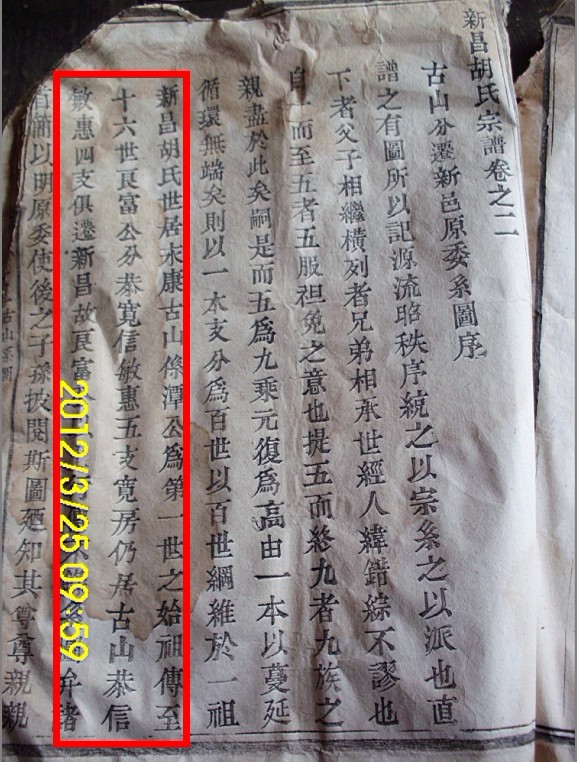 新昌胡氏宗譜卷之二
古山分遷新邑原委系圖序
譜之有圖所以記源流昭秩序統之以宗糸之以派也直
下者父子相繼橫列者兄弟相承世經人緯錯綜不謬也
自一而至五者五服袒免之意也提五而終九者九族之
親盡於此矣嗣是而五爲九乘元復爲高由一本以蔓延
循環無端矣則以一本支分爲百世以百世綱維於一祖
新昌胡氏世居永康古山俊潭公爲第一世之始祖傳至
十六世良富公分恭寬信敏惠五支寬房仍居古山恭信
敏惠四支俱遷新昌故良富 弁諸
首簡以明原委使後之子孫披閱斯圖廼知其尊尊親親
古山系圖
2012/3/25 09:59